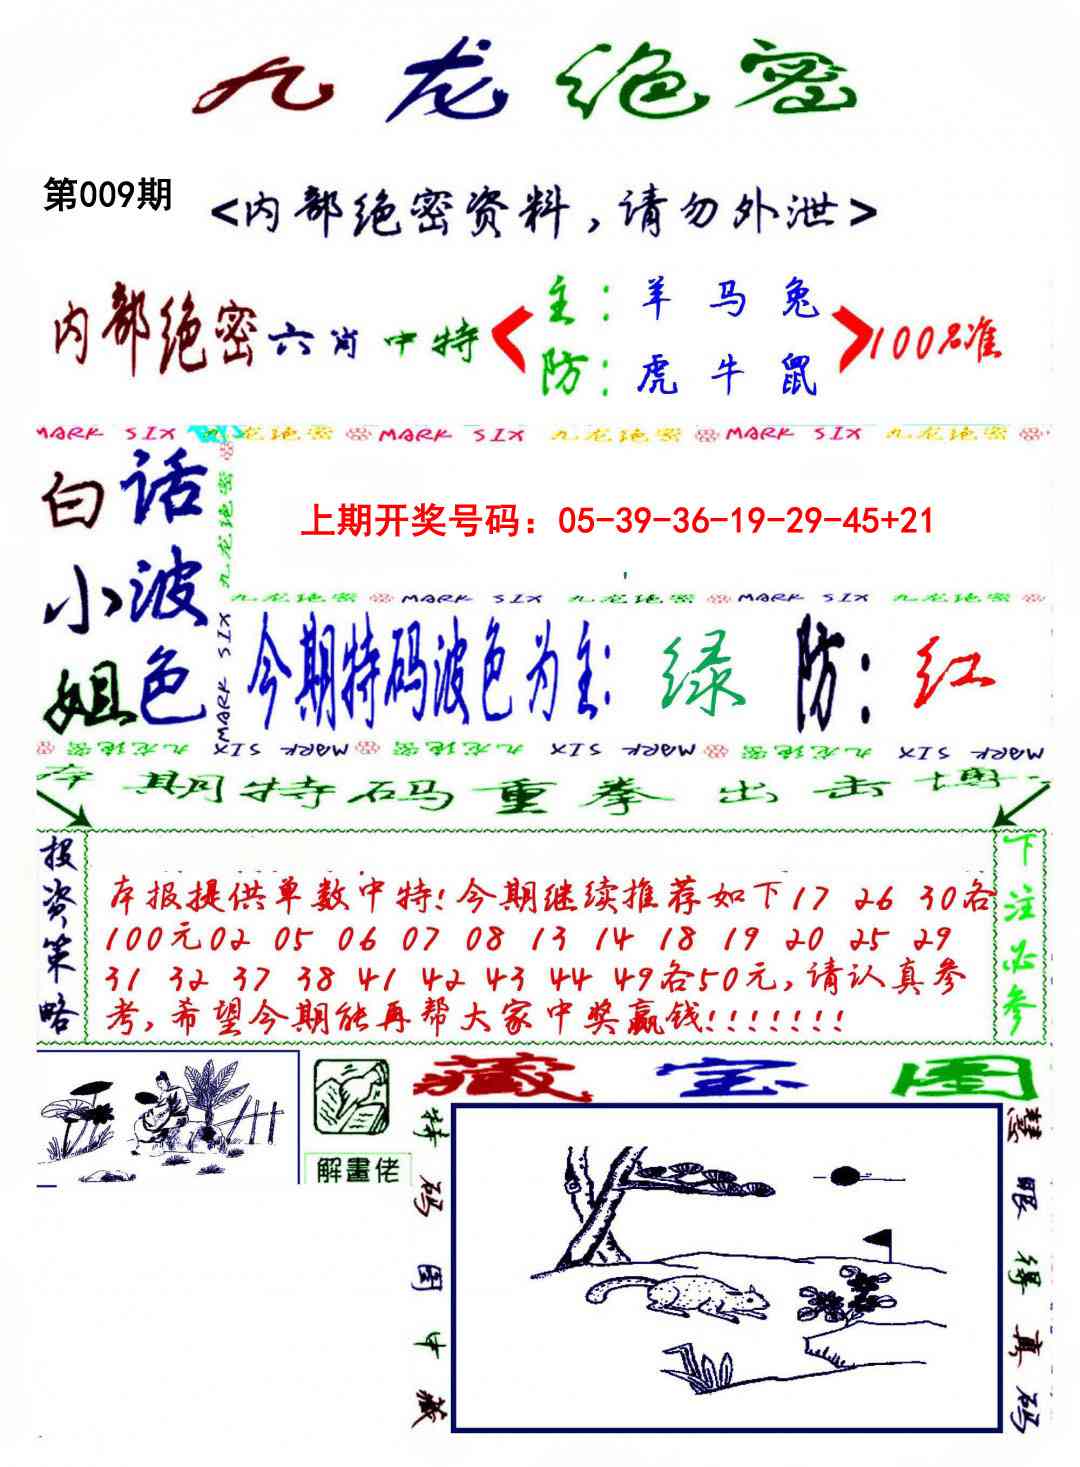 九龙绝密
第009期
<内部绝密资料,请勿外泄>
内部绝密六肖中特
主:羊马兔
防:虎牛鼠
100%准
MARK SIX 九龙绝密 MARK SIX 九龙绝密 MARK SIX 九龙绝密
白话
小波
姐色
九龙绝密
MARK SIX
上期开奖号码：05-39-36-19-29-45+21
九龙绝密 MARK SIX 九龙绝密 MARK SIX 九龙绝密
今期特码波色为主:绿 防:红
九龙绝密 MARK SIX 九龙绝密 MARK SIX 九龙绝密 MARK SIX
本期特码重拳出击博
投资策略
本报提供单数中特!今期继续推荐如下17 26 30各
100元02 05 06 07 08 13 14 18 19 20 25 29
31 32 37 38 41 42 43 44 49各50元,请认真参
考,希望今期能再帮大家中奖赢钱!!!!!!!
下注必参
解畫佬
藏宝图
特码图中藏
慧眼得真码